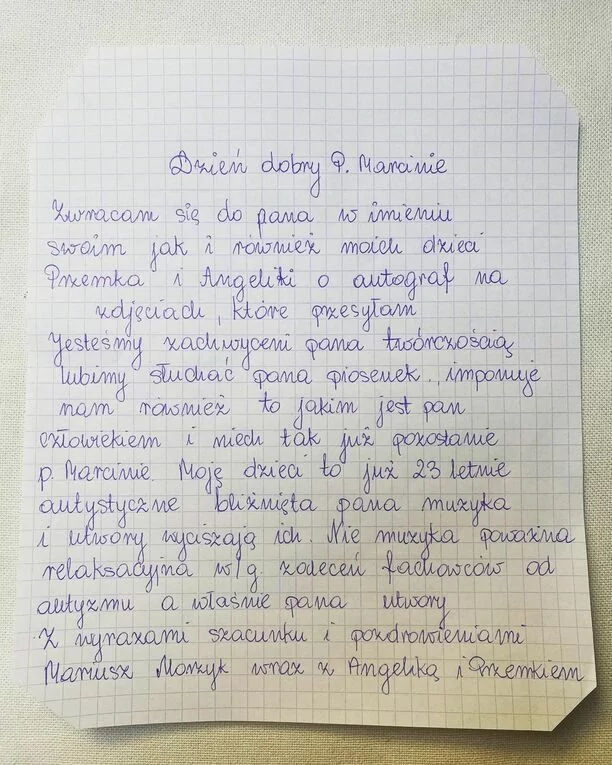 Dzień dobry P. Marcinie
Zwracam się do pana w imieniu
swoim jak i również moich dzieci
Przemka i Angeliki o autograf na
zdjęciach, które przesyłam
Jesteśmy zachwyceni pana twórczością
lubimy słuchać pana piosenek, imponuje
nam również to jakim jest pan
człowiekiem i niech tak już pozostanie
p. Marcinie. Moję dzieci to już 23 letnie
autystyczne bliźnięta pana muzyka
i utwory wyciszają ich. Nie muzyka poważna
relaksacyjna w/g. zaleceń fachowców od
autyzmu a właśnie pana utwory
Z wyrazami szacunku i pozdrowieniami
Mariusz wraz z Angeliką i Przemkiem